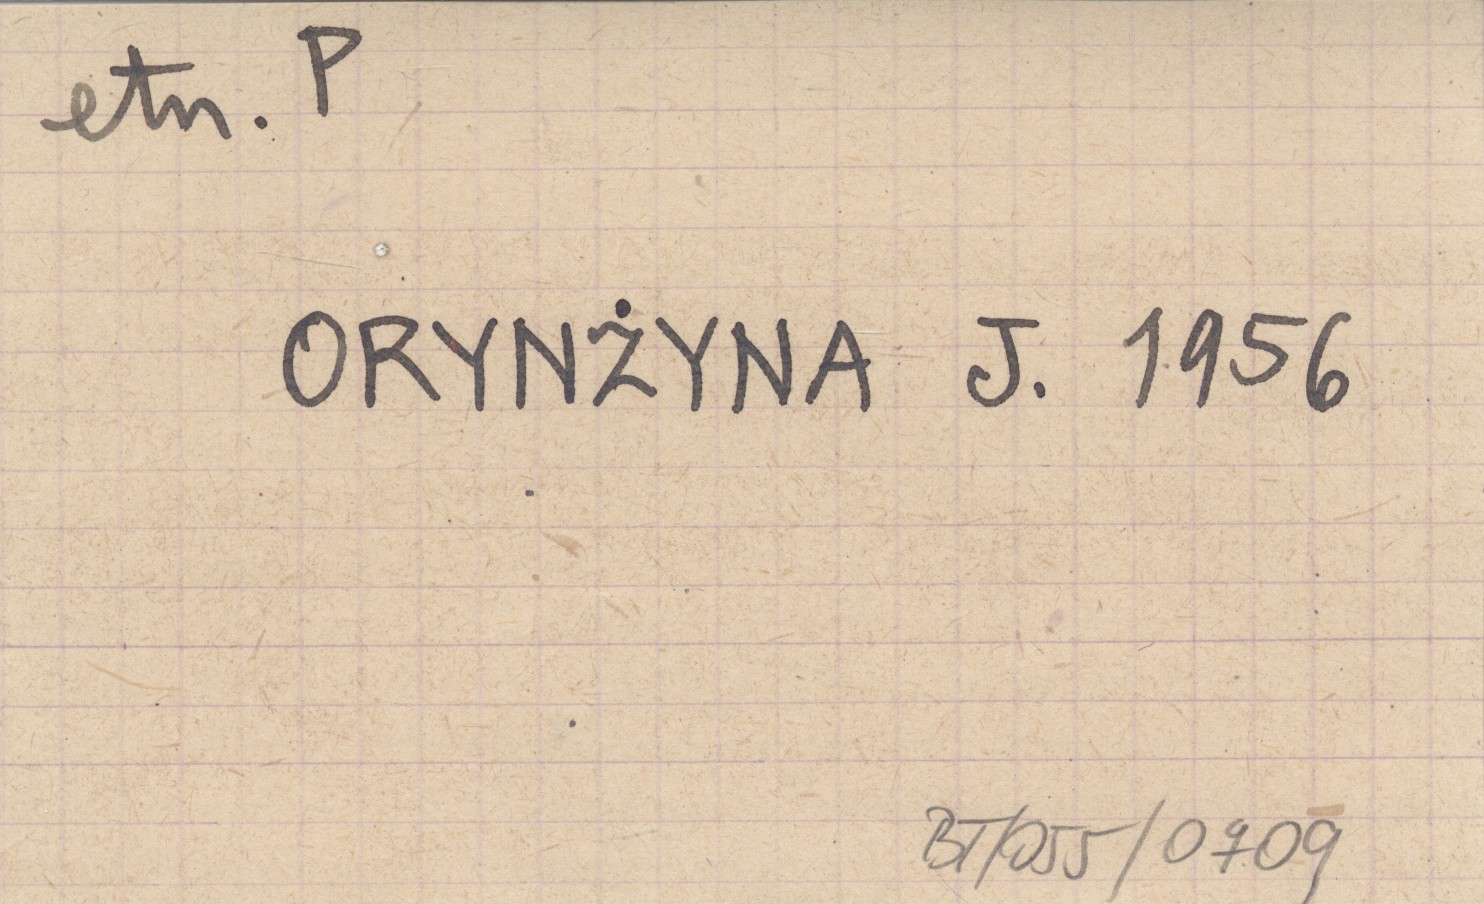 etn. P
ORYNŻYNA J. 1956
BT/055/0709